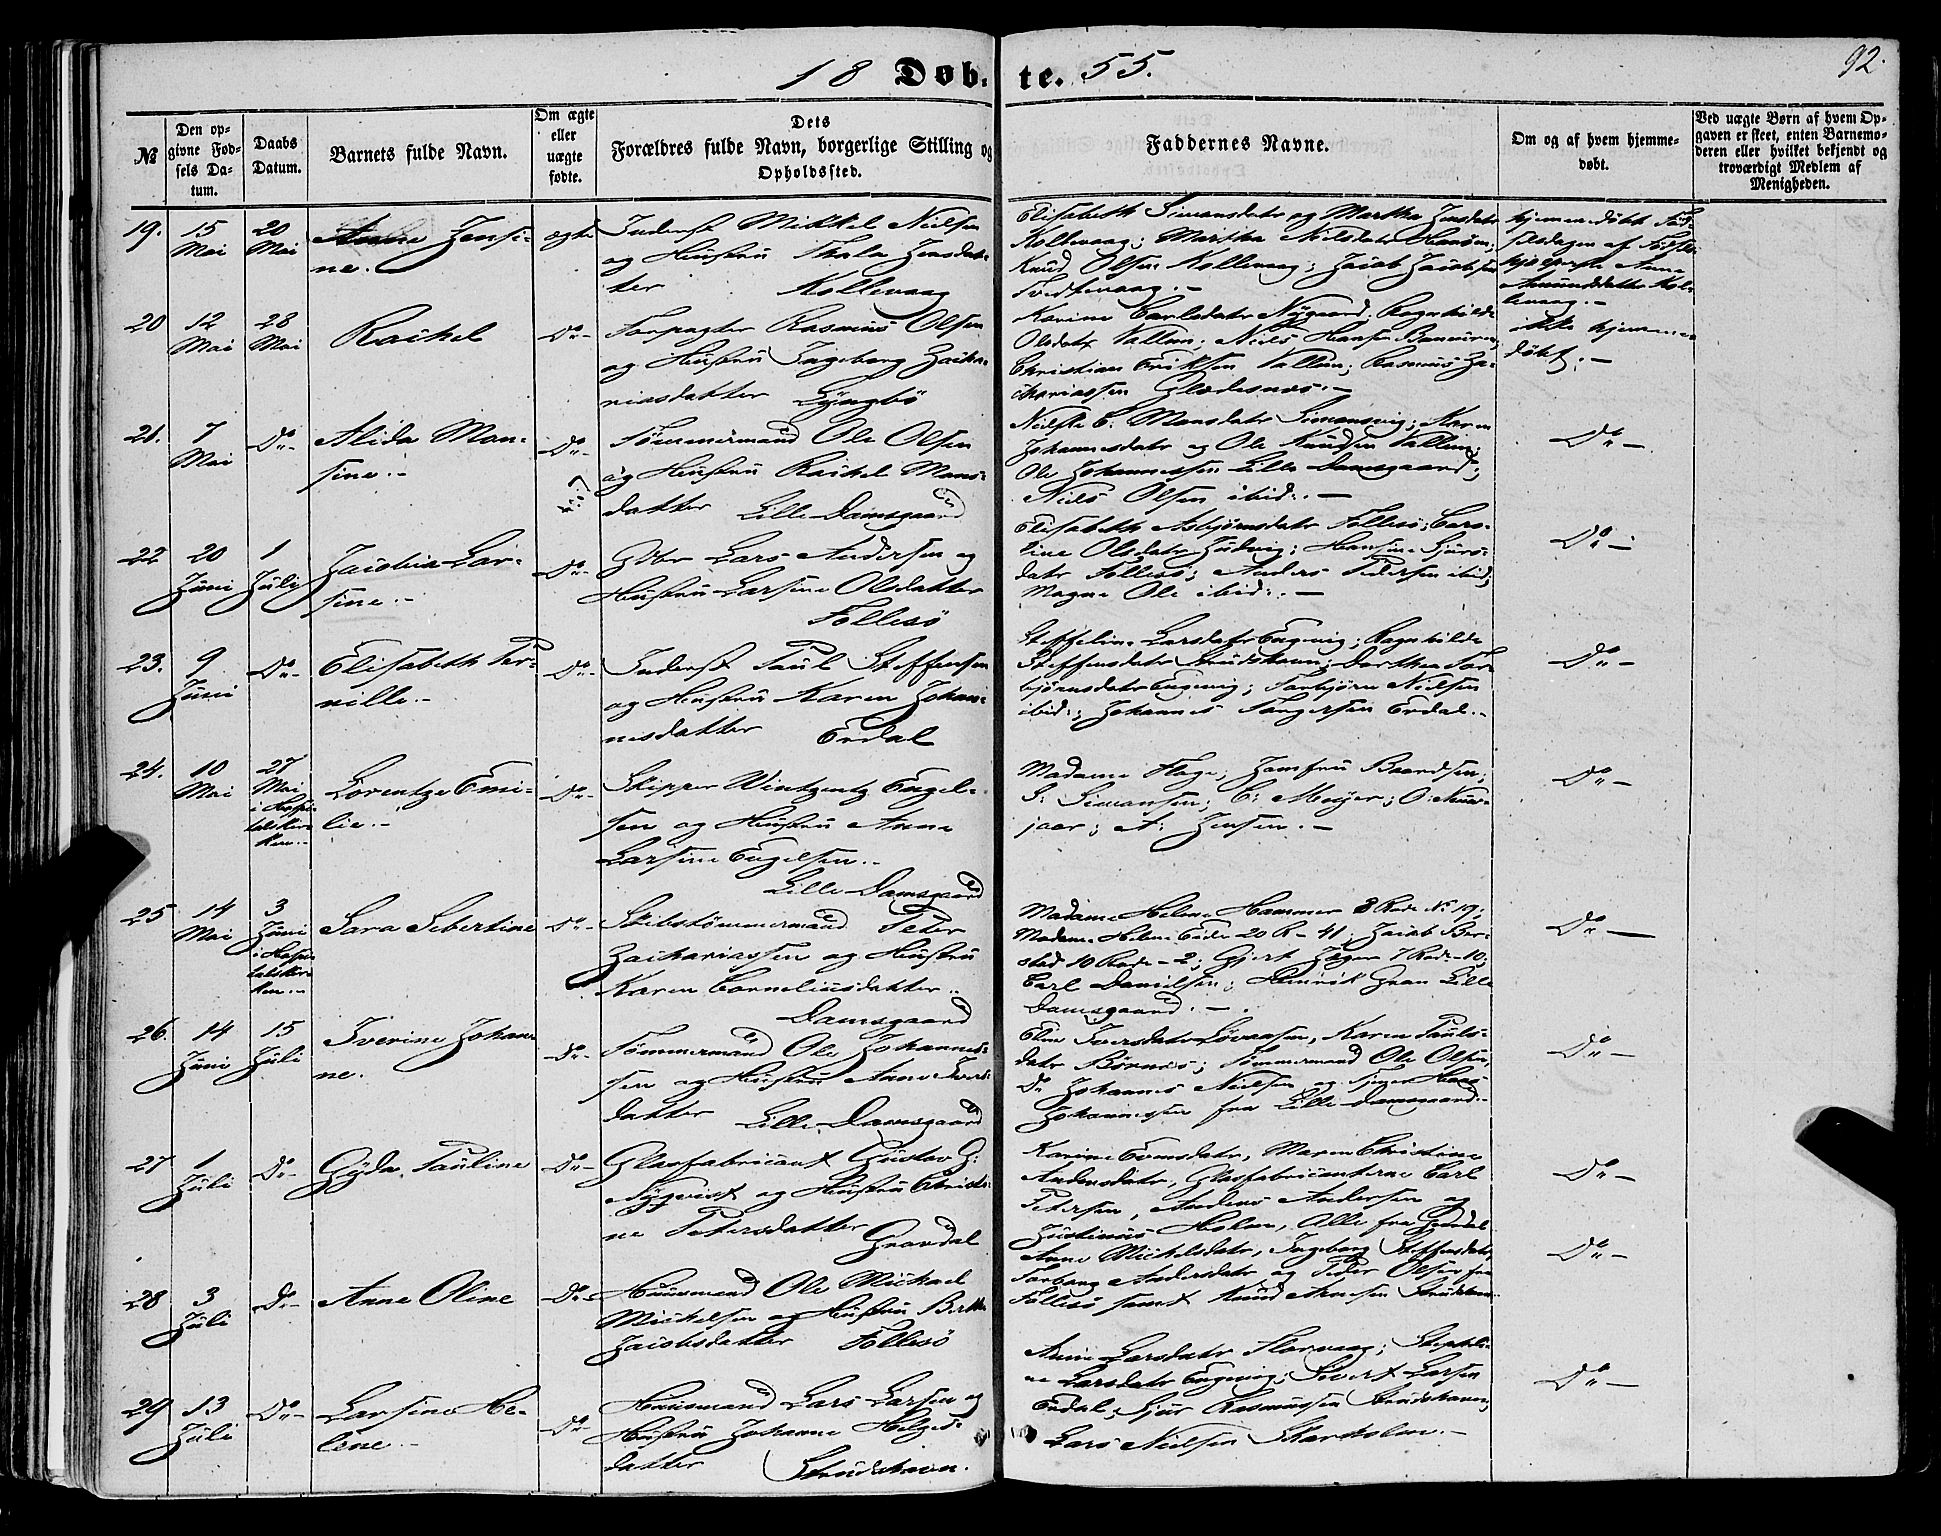 18 Døb- te. 55.
92.
№
Den op-
givne Fød-
sels Da-
tum.
Daabs
Datum.
Barnets fulde Navn.
Om ægte
eller
uægte
fødte.
Dets
Forældres fulde Navn, borgerlige Stilling og
Opholdssted.
Faddernes Navne.
Om og af hvem hjemme-
døbt.
Ved uægte Børn af hvem Op-
gaven er skeet, enten Barnemo-
deren eller hvilket bekjendt og
troværdigt Medlem af
Menigheden.
19. 15 Mai
20 Mai
Anne Jensi-
ne.
ægte
Inderst Mikkel Nielsen
og Hustru Thala Jensdat-
ter Kollevaag
Elisabeth Simonsdatr og Martha Jensdatr
Kollevaag; Martha Nielsdatr
Knud Olsen Kollevaag; Jacob Jacobsen
Tveitevaag.-
hjemmedøbt Fød-
selsdagen af Fødsels-
hjelperske Anne
Amunddatter Kol-
levaag.-
20 12 Mai
28 Mai
Rachel
Do-
Forpagter Rasmus Olsen
og Hustru Ingeborg Zacha-
riasdatter Lyngbö
Karine Carlsdatr Nygaard; Ragnhilde
Olsdatr Vallen; Niels Hansen
Christian Eriksen Vallen; Rasmus Za-
chariassen Gladesnæs.-
ikke hjemme-
døbt.-
21. 7 Mai
Do-
Alida Mon-
sine.-
Do
Tömmermand Ole Olsen
og Hustru Rachel Mons-
datter Lille Damsgaard
C. Monsdatr Simonsvig; Karen
Johannesdatr og Ole Knudsen Vallen;
Ole Johannessen Lille Damsgaard;
Niels Olsen ibid:.-
Do-
22 20 Juni
1 Juli
Jacobia Lar-
sine.-
Do-
Gbr Lars Andersen og
Hustru Larsine Olsdatter
Follesö
Elisabeth Asbjørnsdatr Follesö; Caro-
line Olsdatr; Hansine Sjurs-
datr Follesö; Anders Pedersen ibid;
Magne Ole ibid:.-
Do-
23. 9 Juni
Do-
Elisabeth Per-
nille.-
Do-
Inderst Paul Steffensen
og Hustru Karen Johan-
nesdatter Erdal
Steffeline Larsdatr Engevig; Ragnhilde
Steffensdatr Strudshavn; Dorthea Tor-
bjørnsdatr Engevig; Torbjørn Nielsen
ibid:; Johannes Erdal.-
Do-
24. 10 Mai
27 Mai
i Hospi-
talskir-
ken.-
Lorentze Emi-
lie.-
Do-
Skipper Wintzentz Engel-
sen og Hustru Anne
Larsine Engelsen.-
Lille Damsgaard
Madame Hage; Jomfru Baardsen;
S: Simonsen; C: Meyer; O: Neuer-
jaar; A: Jensen.-
Do-
25 14 Mai
3 Juni
i Hospi-
talskir-
ken.-
Sara Sebertine
Do-
Skibstömmermand Peter
Zachariassen og Hustru
Karen Corneliusdatter..
Damsgaard
Madame Helene Hammer 8 Rode No 19;
Madame Helene 20 R- 41; Jacob Ber-
stad 10 Rode- 2; Gjert 7 Rode- 10;
Carl Danielsen; Henrik Gran Lille
Damsgaard.-
Do-
26. 14 Juni
15 Juli
Iverine Johan-
ne.
Do-
Tömmermand Ole Johannes-
sen og Hustru Anne Ivers-
datter Lille Damsgaard
Iversdatr, Karen Pauls-
datr; Tömmermand Ole Olsen,
Do Johannes Nielsen og
Johannessen fra Lille Damsgaard.-
Do-
27 1 Juli
Do-
Gyda Pauline
Do-
Glasfabricant Gustav G:
Nyqvist og Hustru Christi-
ne Petersdatter Gravdal
Karine Evensdatr, Maren Christine
Andersdatr, Glasfabricanterne Carl
Petersen, Anders Andersen og
Justinus Holm, Alle fra Gravdal
Do-
28 3 Juli
Do-
Anne Oline
Do-
Huusmand Ole Michael
Mickelsen og Hustru Berthe
Jacobsdatter Follesö
Anne Mickelsdatr, Ingeborg Steffensdatr,
Torborg Andersdatr og Peder Olsen fra
Follesö samt Knud Arnesen Strudshavn
Do-
29 13 Juli
Do-
Larsine He-
lene.-
Do-
Huusmand Lars Larsen og
Hustru Johanne Helges-
datter Strudshavn.
Anne Larsdatr Florvaag; Stephli-
ne Larsdatr Engevig; Sivert Larsen
Erdal; Sjur Rasmussen Strudshavn;
Lars Nielsen Skarholm.-
Do-